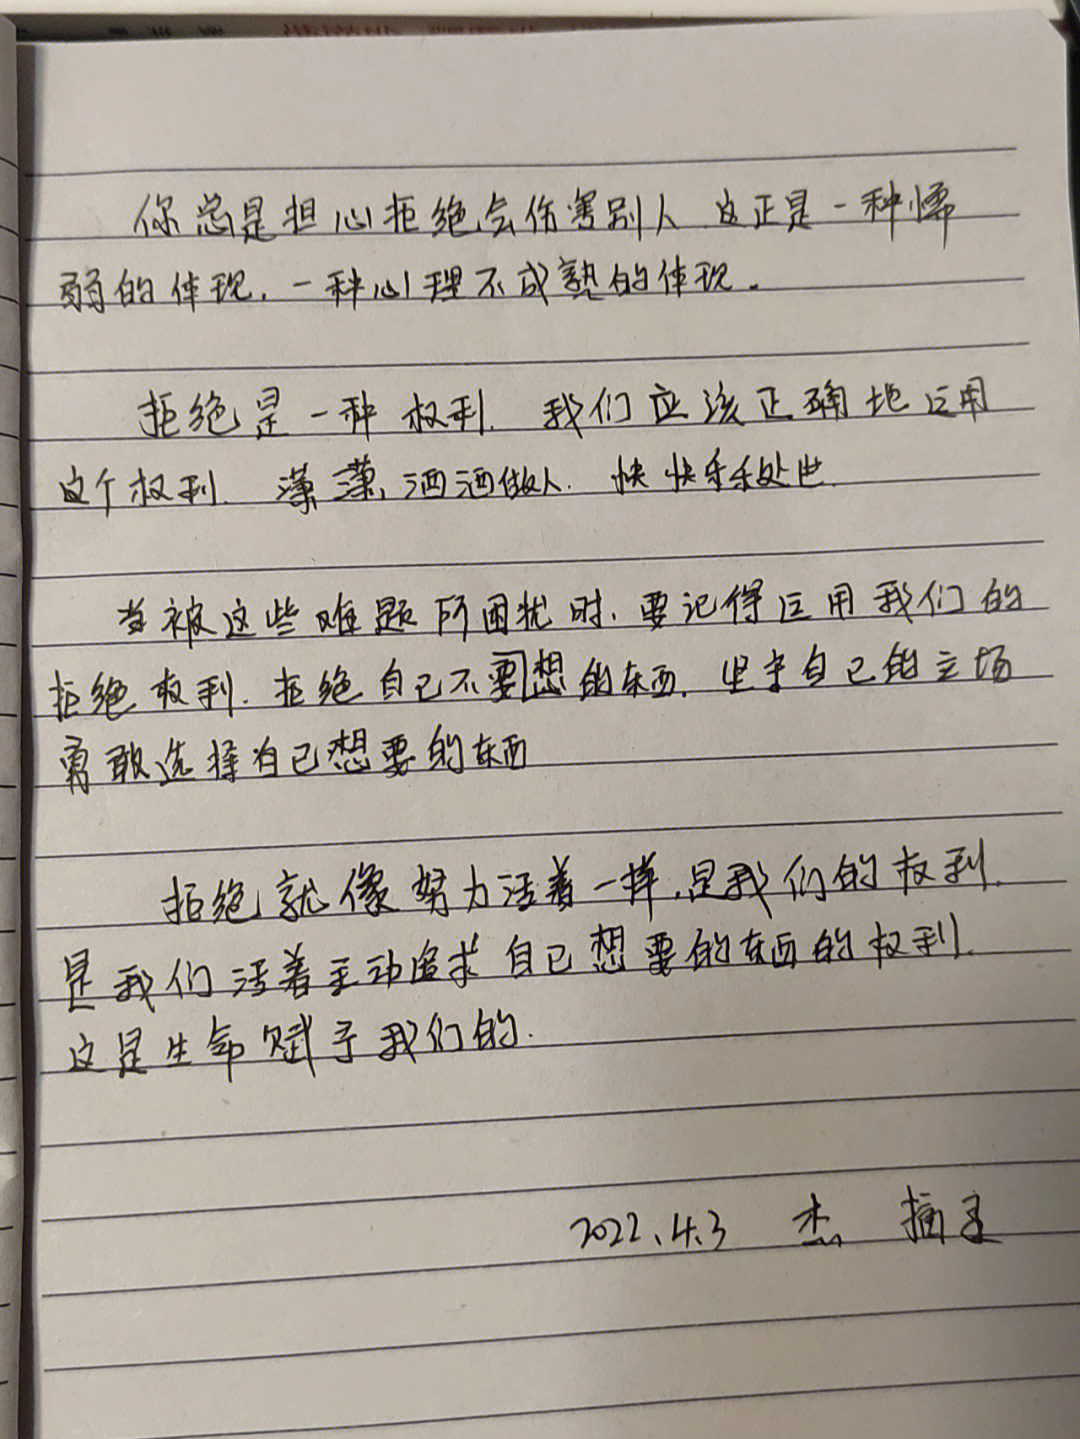 你总是担心拒绝会伤害别人 这正是一种懦
弱的体现,一种心理不成熟的体现。
拒绝是一种权利. 我们应该正确地应用
这个权利. 潇潇洒洒做人. 快快乐乐处世.
当被这些难题所困扰时,要记得应用我们的
拒绝权利. 拒绝自己不要想的东西. 坚守自己的立场
勇敢选择自己想要的东西
拒绝就像努力活着一样,是我们的权利.
是我们活着主动追求自己想要的东西的权利.
这是生命赋予我们的.
2022.4.3 杰 摘